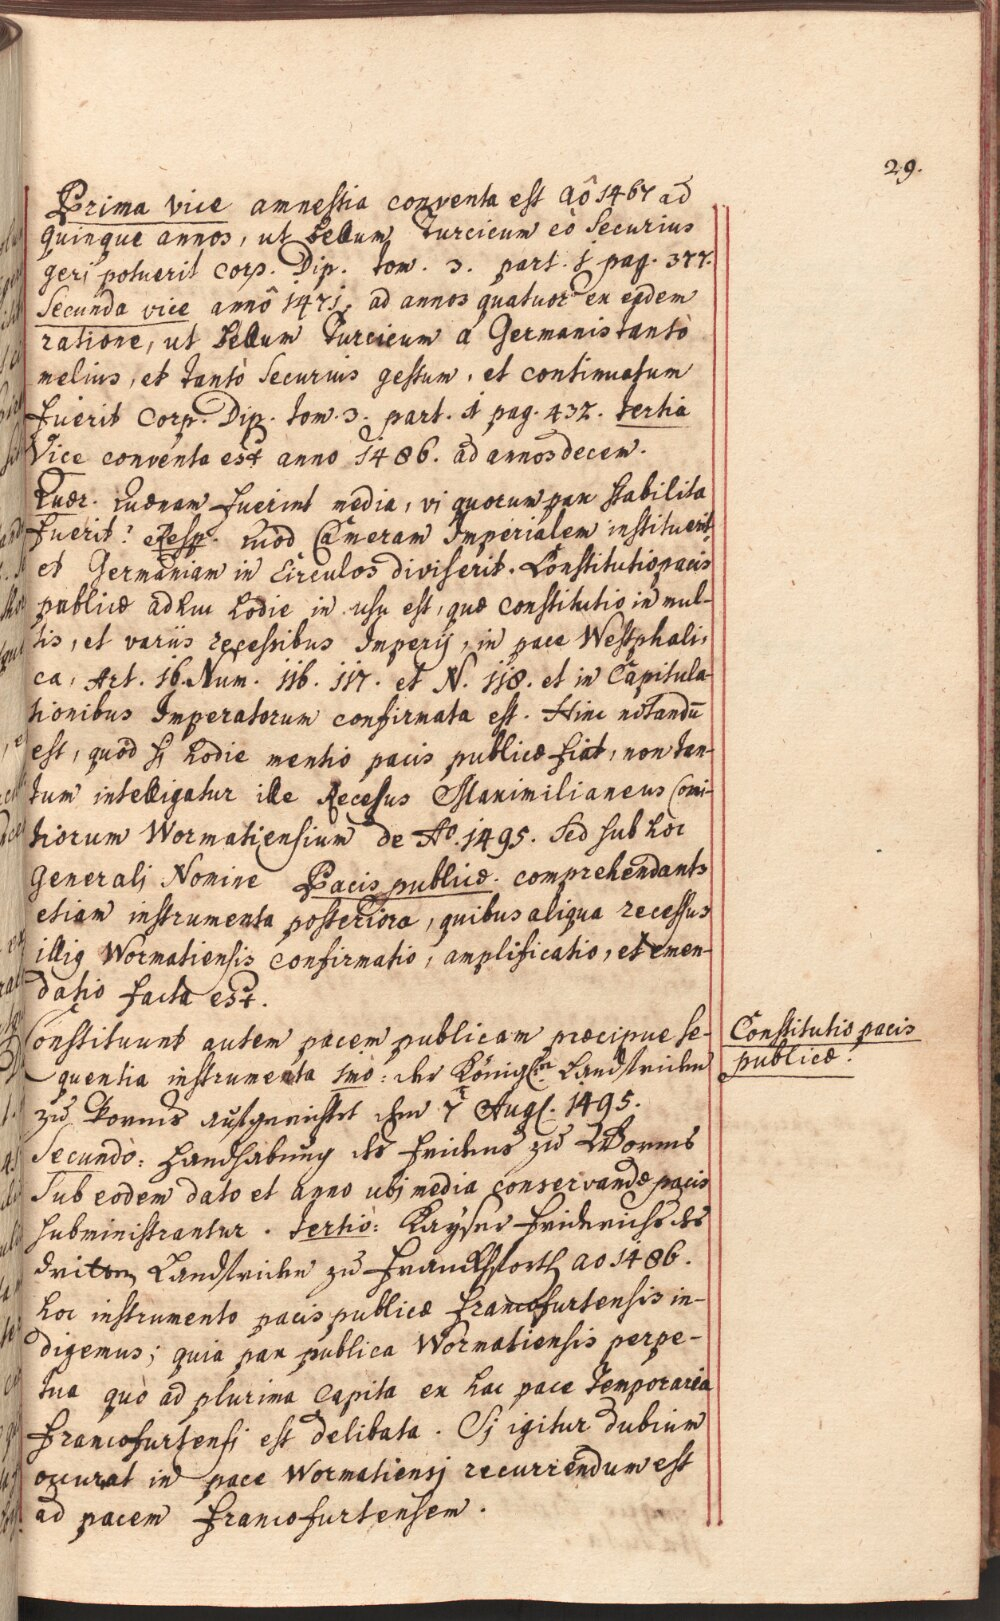 29.
Prima vice amnestia conventa est aô 1467 ad
quinque annos, ut bellum Turcicum eò securius
geri potuerit corp. Dip. tom. 3. part. 1 pag. 377.
Secunda vice annô 1471. ad annos quatuor ex eadem
ratione, ut bellum Turcicum a Germanis tantò
melius, et tantò securius gestum, et continuatum
fuerit Corp. Dip. tom. 3. part. 1 pag. 432. tertia
Vice conventa est anno 1486. ad annos decem.
Quær. quænam fuerint media, vi quorum pax stabilita
fuerit? Resp. quod Cameram Imperialem instituerit,
et Germaniam in Circulos diviserit. Constitutio pacis
publicæ adhuc hodie in usu est, quæ constitutio in mul-
tis, et variis recessibus Imperij, in pace Westphali,
ca, Art. 16. Num. 116. 117. et N. 118. et in Capitula-
tionibus Imperatorum confirmata est. Hinc notandū
est, quòd si hodie mentio pacis publicæ fiat, non tan-
tum intelligatur ille Recessus Maximilianeus Comi-
tiorum Wormatiensium de Ao. 1495. Sed sub hoc
generali Nomine Pacis publicæ. comprehendantr
etiam instrumenta posteriora, quibus aliqua recessus
illig Wormatiensis confirmatio, amplificatio, et emen-
datio facta est.
Constituunt autem pacem publicam præcipue se-
quentia instrumenta 1mò: der Königln. Landfrieden
zu Worms aufgerichtet den 7 Augl. 1495.
Secundò: Handhabung des fridens zu Worms
Sub eodem dato et anno ubi media conservandæ pacis
subministrantur. tertiò: Kayser friderichs des
dritten Landfrieden zu Franckfforth ao 1486.
hoc instrumento pacis publicæ francofurtensis in-
digemus; quia pax publica Wormatiensis perpe-
tua quò ad plurima capita ex hac pace temporaria
francofurtensi est delibata. Si igitur dubium
occurat in pace Wormatiensi recurrendum est
ad pacem francofurtensem.
Constitutio pacis
publicæ.